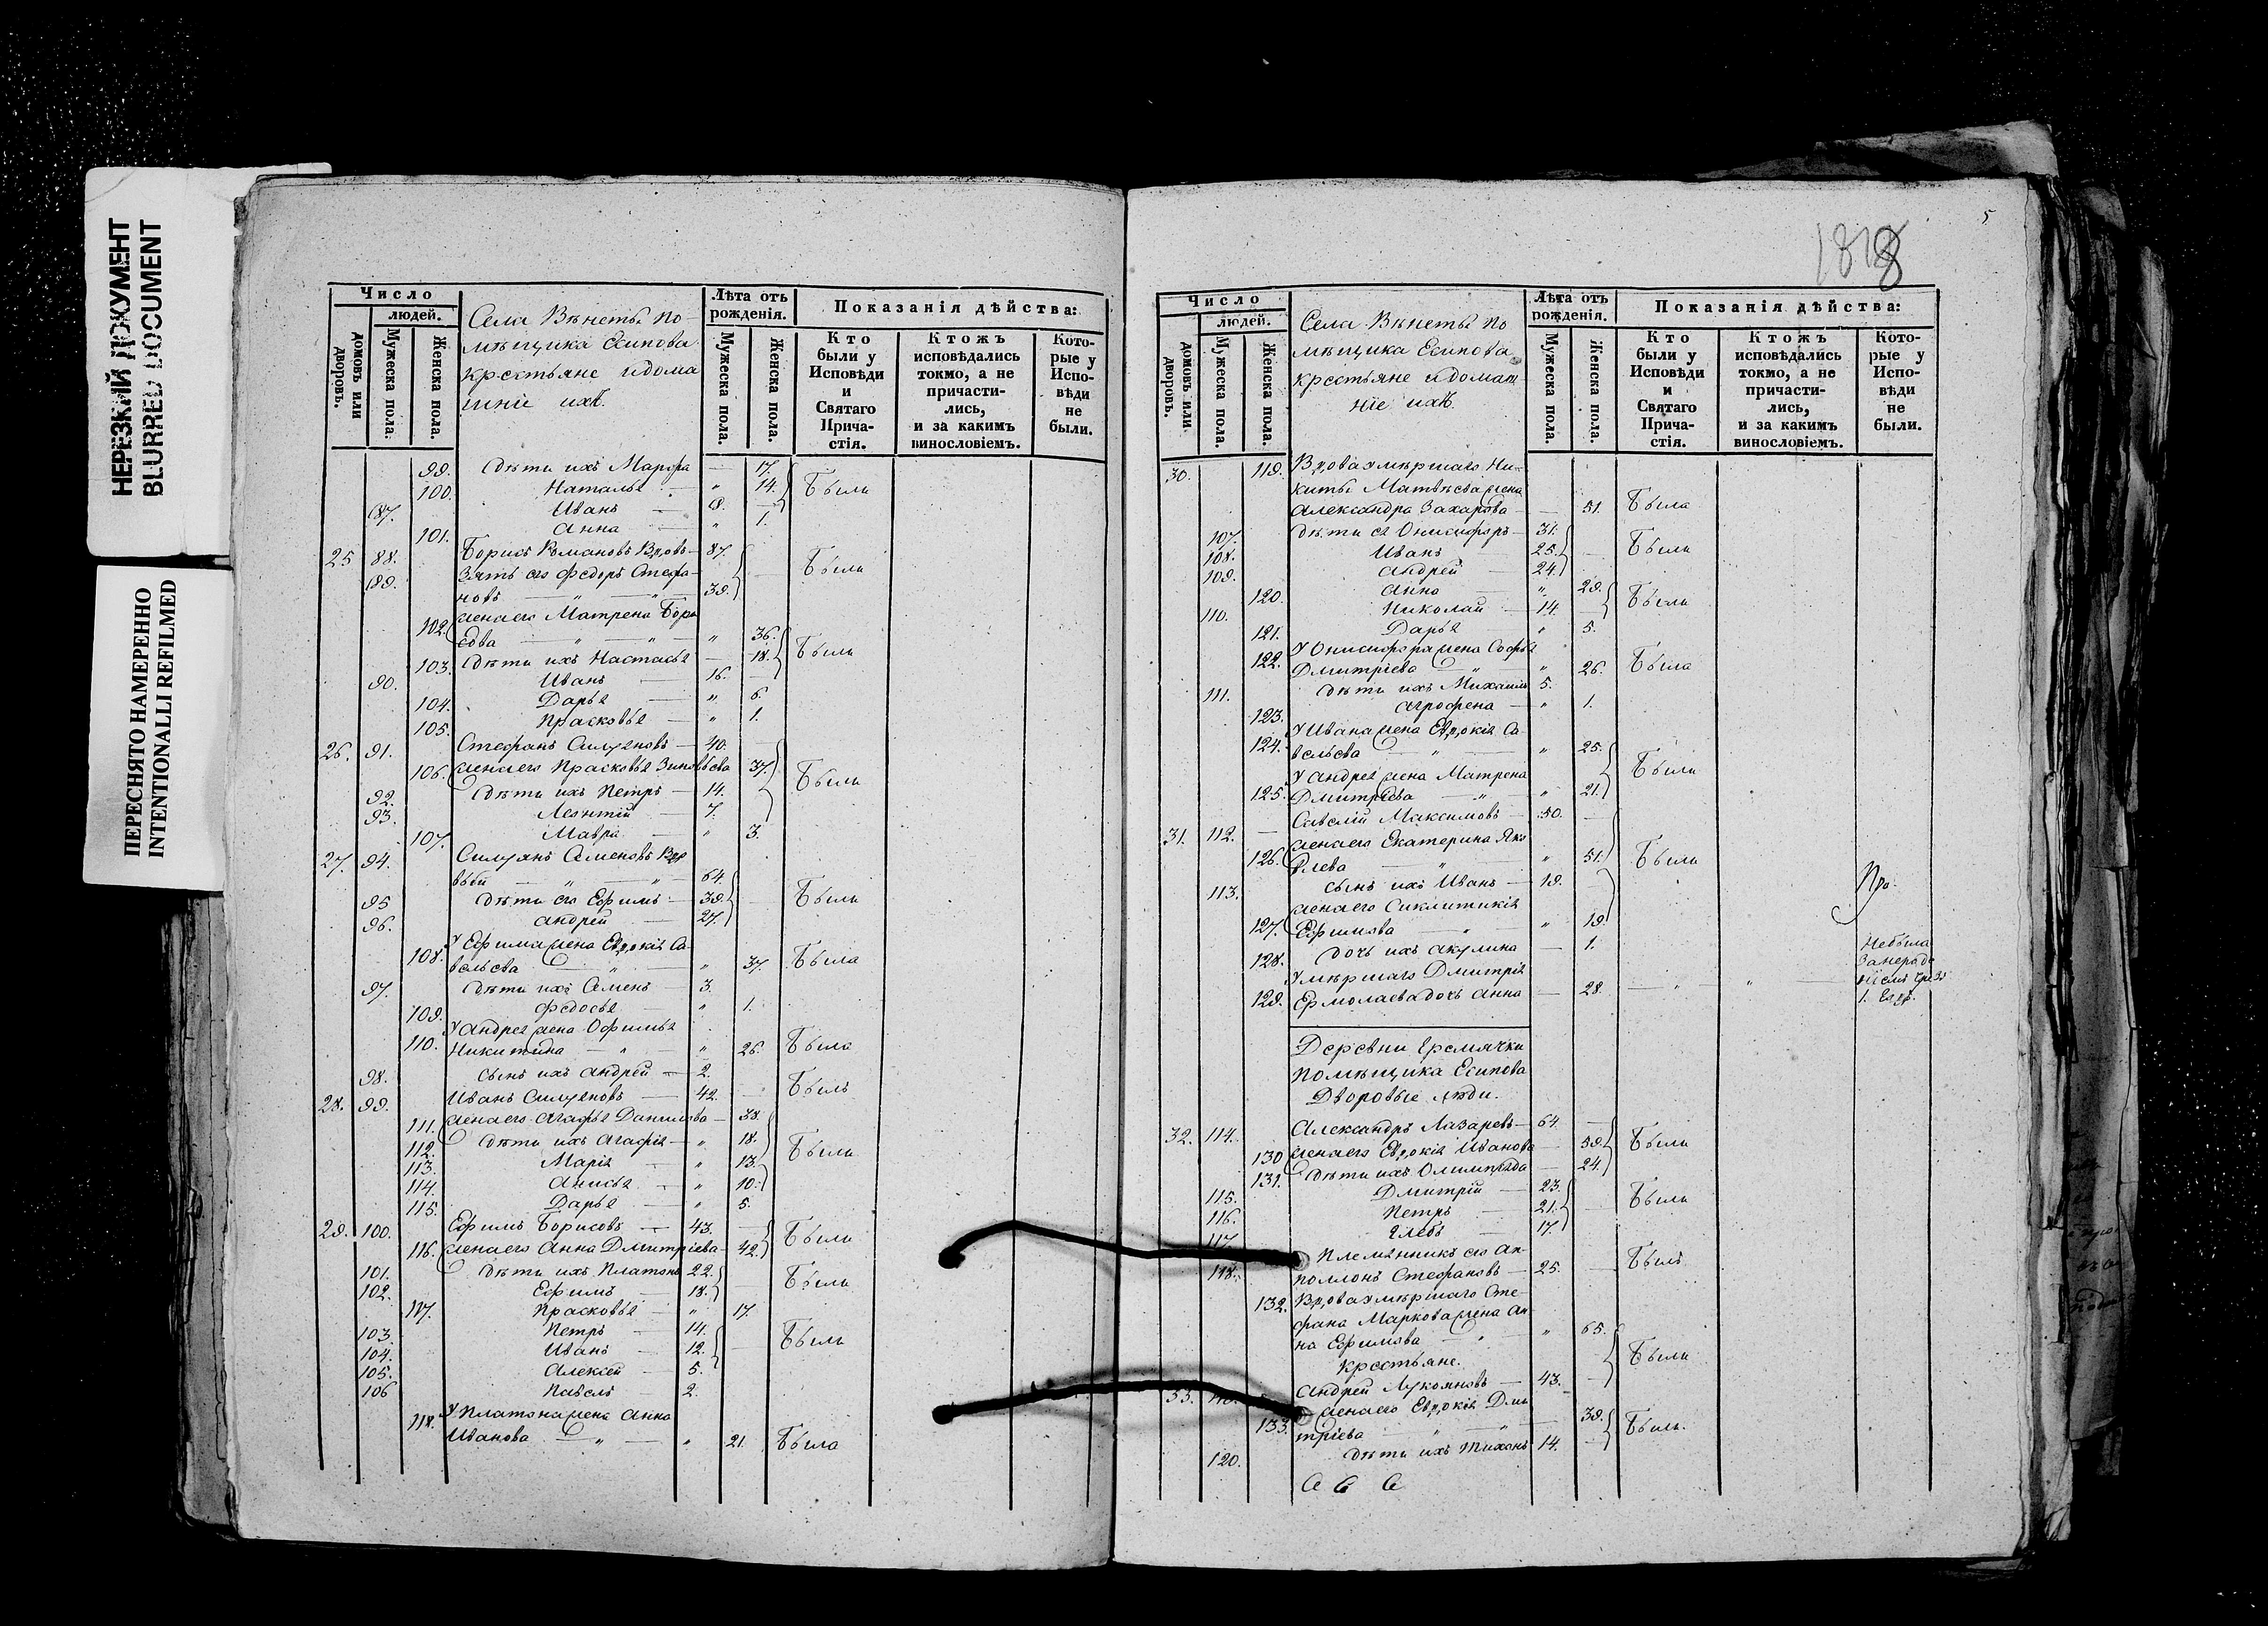 НЕРЕЗКИЙ ДОКУМЕНТ
BLURRED DOCUMENT
ПЕРЕСНЯТО НАМЕРЕННО
INTENTIONALLI REFILMED
Число
людей.
домовъ или дворовъ.
Мужеска пола.
Женска пола.
Села Вѣнеты по-
мѣщика Есипова
крестьяне и дома
шніе ихъ.
Лѣта отъ рожденія.
Мужеска пола.
Женска пола.
Показанія дѣйства:
Кто были у Исповѣди и Святаго Прича-стія.
Ктожъ исповѣдались токмо, а не причасти-лись, и за какимъ винословіемъ.
Кото-рые у Испо-вѣди не были.
99. Дѣти ихъ Марфа — 17.
100. Наталья — " 14. Были
87. Иванъ — 8. —
101. Анна — " 1.
25 88. Борисъ Романовъ Вдовъ — 87.
89. Зять его Федоръ Стефа- Были
новъ — " — " — 39.
102. жена его Матрена Бори
сова — " — " — " 36.
103. Дѣти ихъ Настасья — 18. Были
90. Иванъ — 16. —
104. Дарья — " 6.
105. Прасковья — " 1.
26. 91. Стефанъ Силуяновъ — 40. —
106. жена его Прасковья Зиновьева 37.
92. Дѣти ихъ Петръ — 14. Были
93. Леонтій — 7.
107. Мавра — " 3.
27. 94. Силуянъ Семеновъ Вдо
вый — " — " — 64.
95 Дѣти его Ефимъ — 39. Были
96. Андрей — 27.
108. У Ефима жена Евдокія Са-
вельева — " — " 37. Была
97. Дѣти ихъ Семенъ — 3.
109. Федосья — " 1.
110. У Андрея жена Офимья
Никитина — " — " 26. Была
98. Сынъ ихъ Андрей — 2.
28. 99. Иванъ Силуяновъ — 42. — Былъ
111. жена его Агафья Данилова — 38.
112. Дѣти ихъ Агафія — " 18.
113. Марія — " 13. Были
114. Анисья — " 10.
115. Дарья — " 5.
29. 100. Ефимъ Борисовъ — 43. — Были
116. жена его Анна Дмитріева — 42.
101. Дѣти ихъ Платонъ 22.
102. Ефимъ — 18. Были
117. Прасковья — " 17.
103. Петръ — 14.
104. Иванъ — 12. — Были
105. Алексей — 5.
106 Павелъ 2.
118. У Платона жена Анна
Иванова — " — " 21. Была
1818
5
Число
людей.
домовъ или дворовъ.
Мужеска пола.
Женска пола.
Села Вѣнеты по
мѣщика Есипова
крестьяне и домаш
ніе ихъ.
Лѣта отъ рожденія.
Мужеска пола.
Женска пола.
Показанія дѣйства:
Кто были у Исповѣди и Святаго Прича-стія.
Ктожъ исповѣдались токмо, а не причасти-лись, и за какимъ винословіемъ.
Кото-рые у Испо-вѣди не были.
30. 119. Вдова умѣршаго Ни-
киты Матвѣева жена
Александра Захарова — 51. Была
107. Дѣти ея Онисифоръ — 31.
108. Иванъ 25. — Были
109. Андрей — 24.
120. Анна — " 29.
110. Николай — 14. — Были
121. Дарья " 5.
122. У Онисифора жена Софья
Дмитріева — " — " 26. Была
111. Дѣти ихъ Михаилъ 5.
123. Агрофена — " 1.
124. У Ивана жена Евдокія Са
вельева — " — " 25.
125. У Андрея жена Матрена Были
Дмитріева — " — " 21.
31. 112. — Савелій Максимовъ — 50. —
126. жена его Екатерина Яко
влева — " " 51. Были
113. сынъ ихъ Иванъ — 19. —
127. жена его Сиклитикія
Ефимова — " — " 19.
128. дочь ихъ Акулина — 1.
129. Умѣршаго Дмитрія
Ермолаева дочь Анна — 28. — " " — Небыла
Деревни Гремячки
помѣщика Есипова
Дворовые люди.
32. 114. Александръ Лазаревъ — 64. —
130 жена его Евдокія Иванова — 59. Были
131. Дѣти ихъ Олимпіада — 24.
115. Дмитрій — 23.
116. Петръ — 21. — Были
117. Глебъ — 17.
118. Племянникъ его Ап-
поллонъ Стефановъ — 25. — Былъ
132. Вдова умѣршаго Сте-
фана Маркова жена Ан
на Ефимова — " — " 65.
Крестьяне. Были
33. Андрей Лукояновъ — 43. —
133. жена его Евдокія Дми
тріева — " — " — 39. Были.
120. Дѣти ихъ Тихонъ 14. —